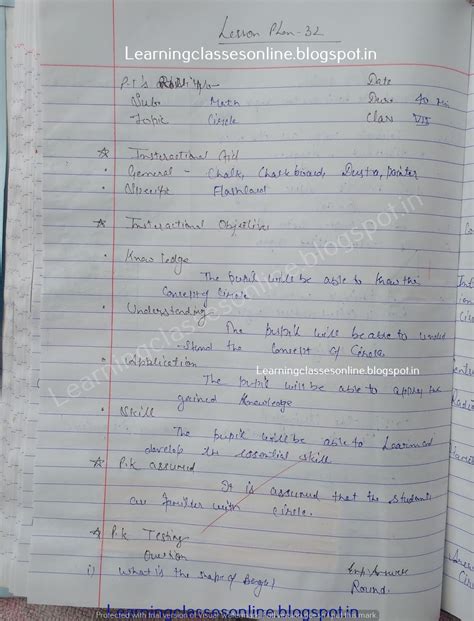 Lesson Plan-32
Learningclassesonline.blogspot.in
P.T's Roll No Date
Sub:- Math Dur: 40 Min
Topic Circle Class VII
☆ Instructional Aid
• General - Chalk, Chalkboard, Duster, pointer
• Specific Flashcard
☆ Instructional Objective
• Knowledge
The pupil will be able to know the
Concept of Circle
• Understanding
The pupil will be able to under
-stand the Concept of Circle
Learningclassesonline.blogspot.in
• Application
The pupil will be able to apply the
gained knowledge
• Skill
The pupil will be able to Learn and
develop the essential skill
☆ P.k assumed
It is assumed that the students
are familier with circle.
☆ P.k Testing
Question Exp. Answer
i) What is the shape of Bangle? Round.
Learningclassesonline.blogspot.in
Learningclassesonline.blogspot.in
Protected with trial version of Visual Watermark